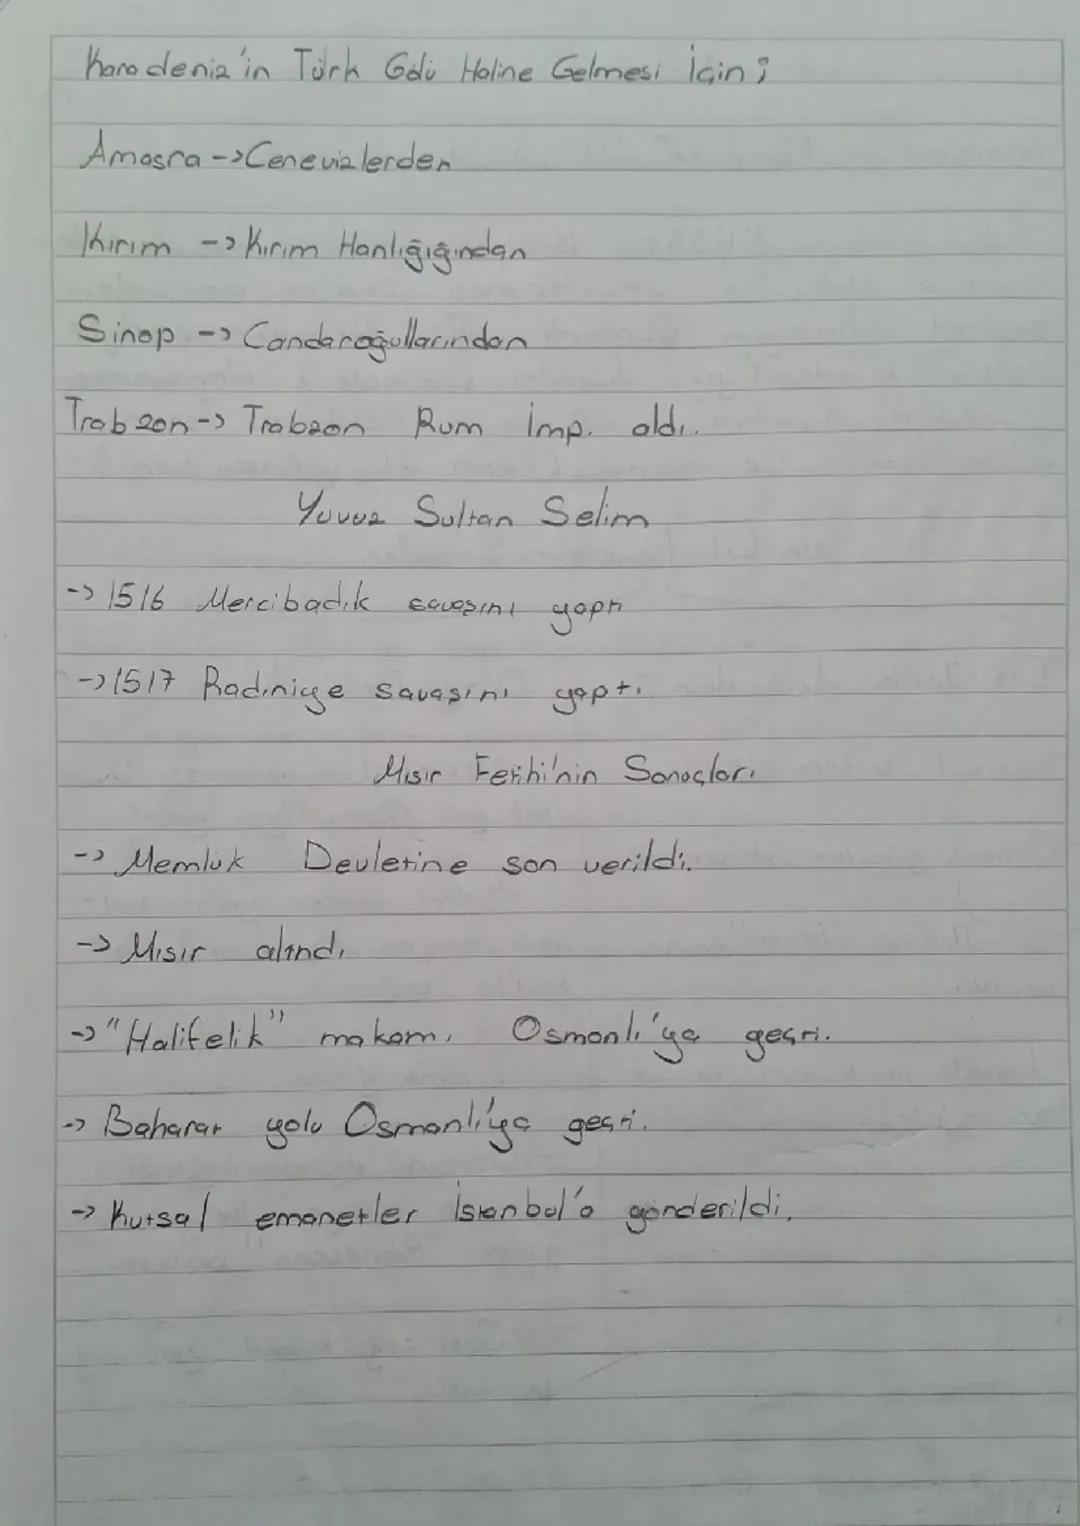 Karadeniz'in Türk Gölü Haline Gelmesi İçin;
Amasra -> Cenevizlerden
Kırım -> Kırım Hanlığığından
Sinop -> Candaroğullarından
Trabzon -> Trabzon Rum İmp. aldı.
Yavuz Sultan Selim
-> 1516 Mercibadık savaşını yaptı
-> 1517 Radiniye savaşını yaptı
Mısır Fetihi'nin Sonuçları
-> Memlük Devletine son verildi.
-> Mısır alındı
-> "Halifelik" makamı Osmanlı'ya geçti.
-> Baharat yolu Osmanlı'ya geçti.
-> Kutsal emanetler İstanbul'a gönderildi.